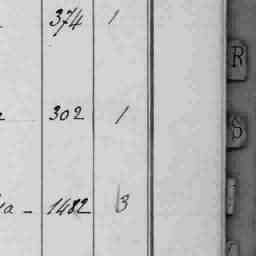 374 1
R
302 1
S
a - 1482 3